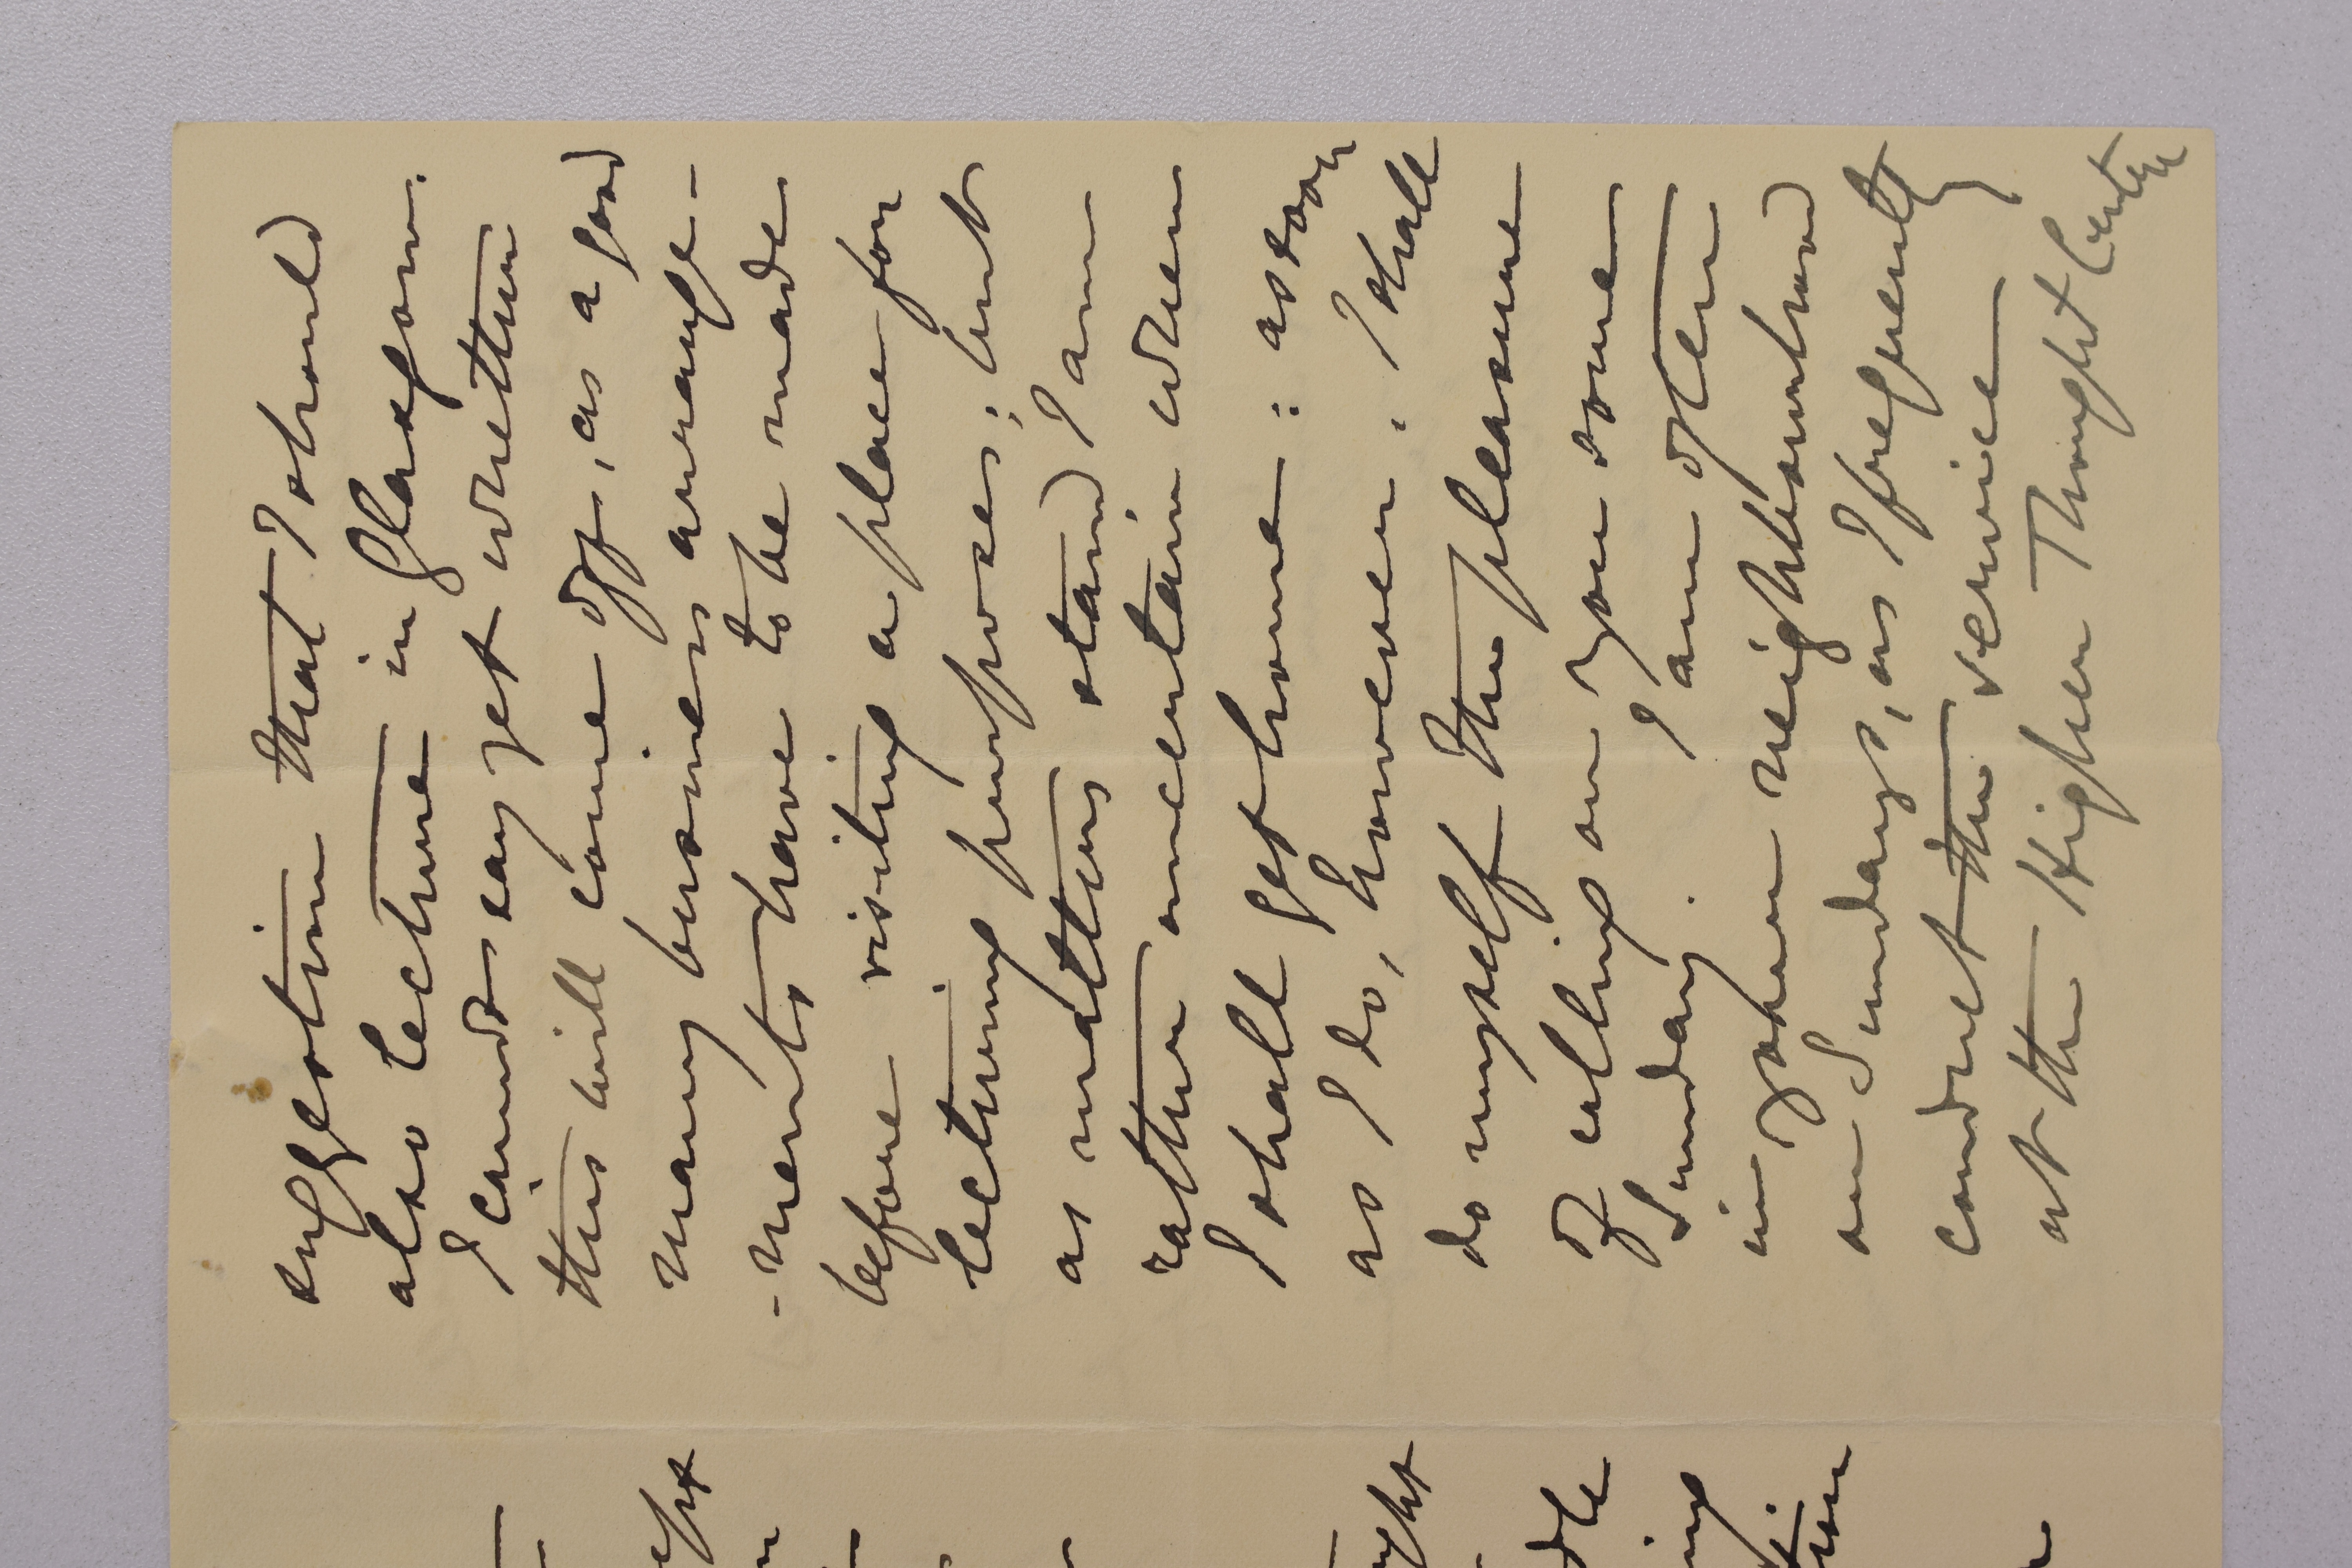 suggestion that I should
also lecture in Glasgow.
I cannot say yet whether
this will come off, as a good
many business arrange-
-ments have to be made
before visiting a place for
lecturing purposes; but
as matters stand I am
rather uncertain when
I shall get home: as soon
as I do, however, I shall
do myself the pleasure
of calling on you some
Sunday. I am often
in your neighbourhood
on Sundays, as I frequently
conduct the service
at the Higher Thought Centre